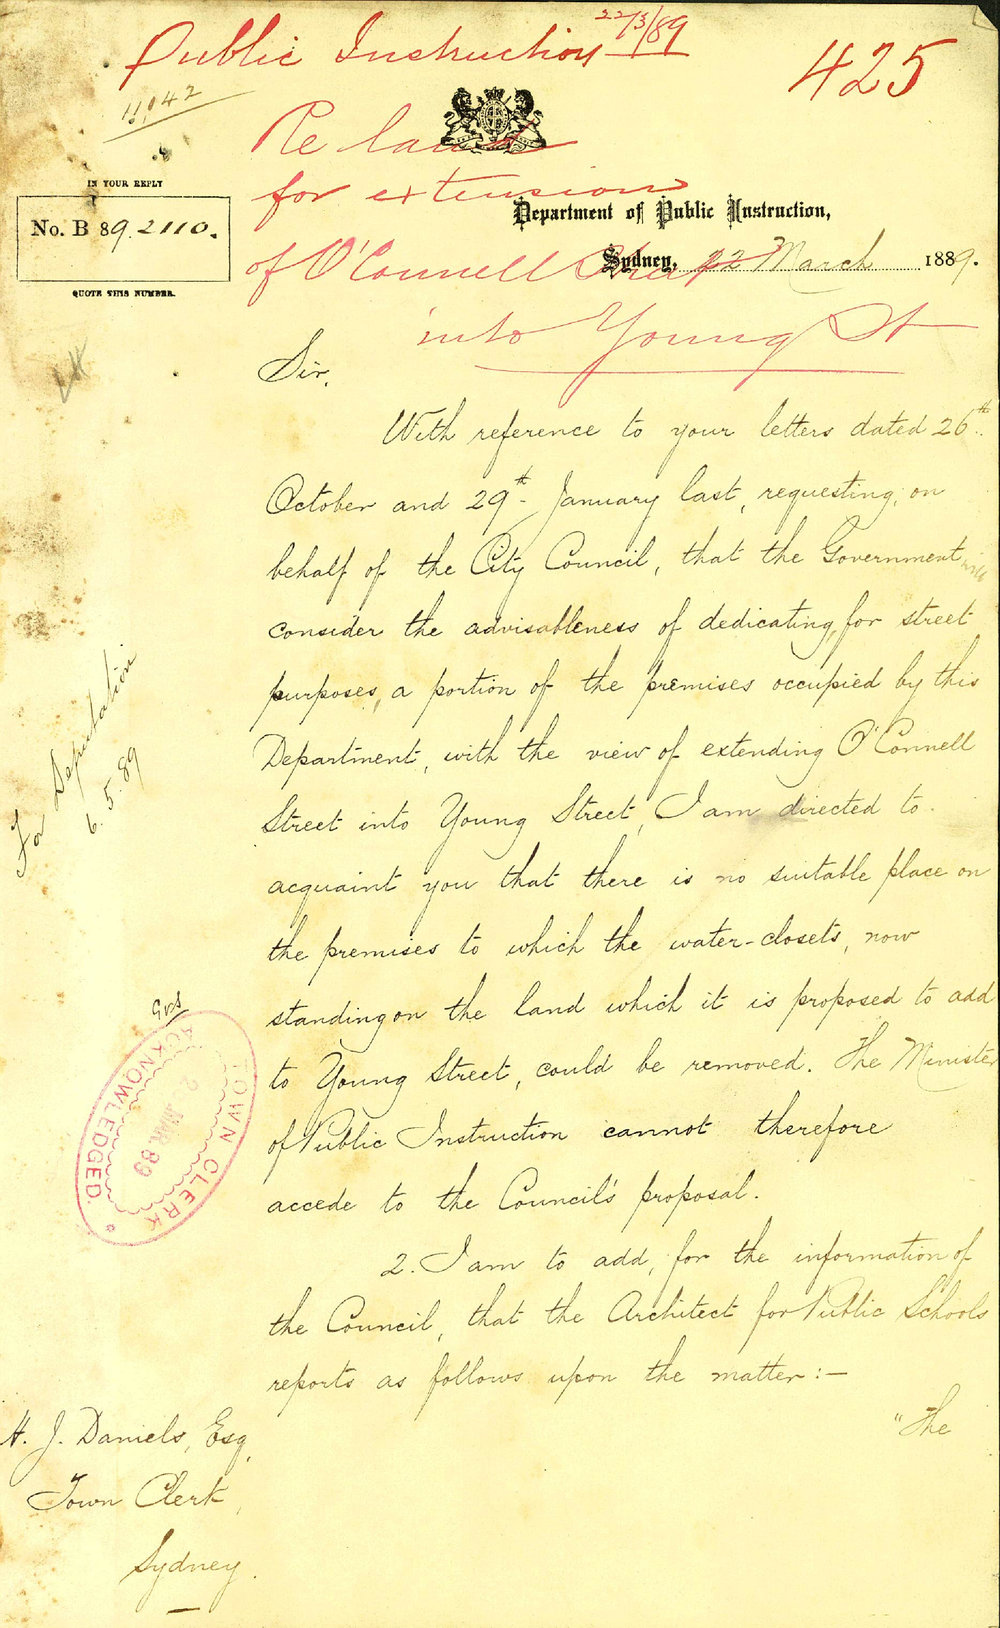 Public Instruction 22/3/89
425
11,042
Re land
for extension
of O'Connell Street
into Young St
IN YOUR REPLY
No. B 89.2110.
QUOTE THIS NUMBER.
Department of Public Instruction,
Sydney, 22 March 1889.
Sir,
With reference to your letters dated 26th
October and 29th January last, requesting, on
behalf of the City Council, that the Government will
consider the advisableness of dedicating, for street
purposes, a portion of the premises occupied by this
Department, with the view of extending O'Connell
Street into Young Street, I am directed to
acquaint you that there is no suitable place on
the premises to which the water-closets, now
standing on the land which it is proposed to add
to Young Street, could be removed. The Minister
of Public Instruction cannot therefore
accede to the Council's proposal.
2. I am to add, for the information of
the Council, that the Architect for Public Schools
reports as follows upon the matter:—
"The
For Deputation
6.5.89
TOWN CLERK
MAR. 89
ACKNOWLEDGED.
H. J. Daniels, Esq,
Town Clerk,
Sydney.